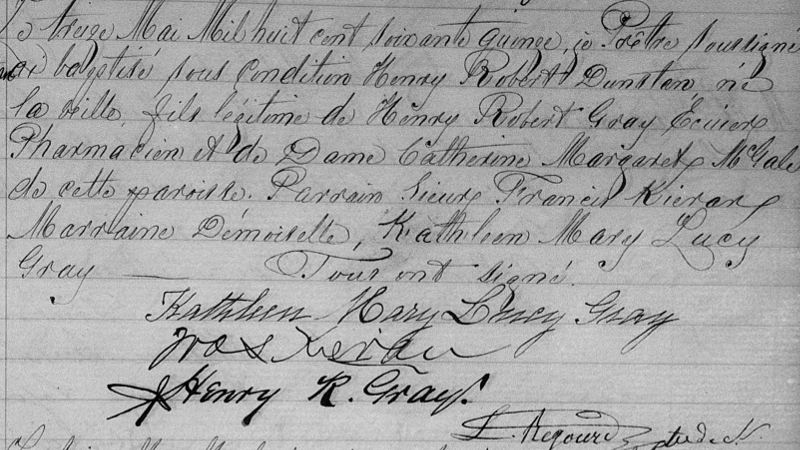 Le treize Mai Mil huit cent soixante quinze, je Prêtre soussigné
ai baptisé sous condition Henry Robert Dunstan né
la veille, fils légitime de Henry Robert Gray Ecuier
Pharmacien et de Dame Catherine Margaret McGale
de cette paroisse. Parrain Sieur Francis Kieran
Marraine Démoiselle, Kathleen Mary Lucy
Gray — Tous ont signé.
Kathleen Mary Lucy Gray
Fras Kieran
Henry R. Gray.